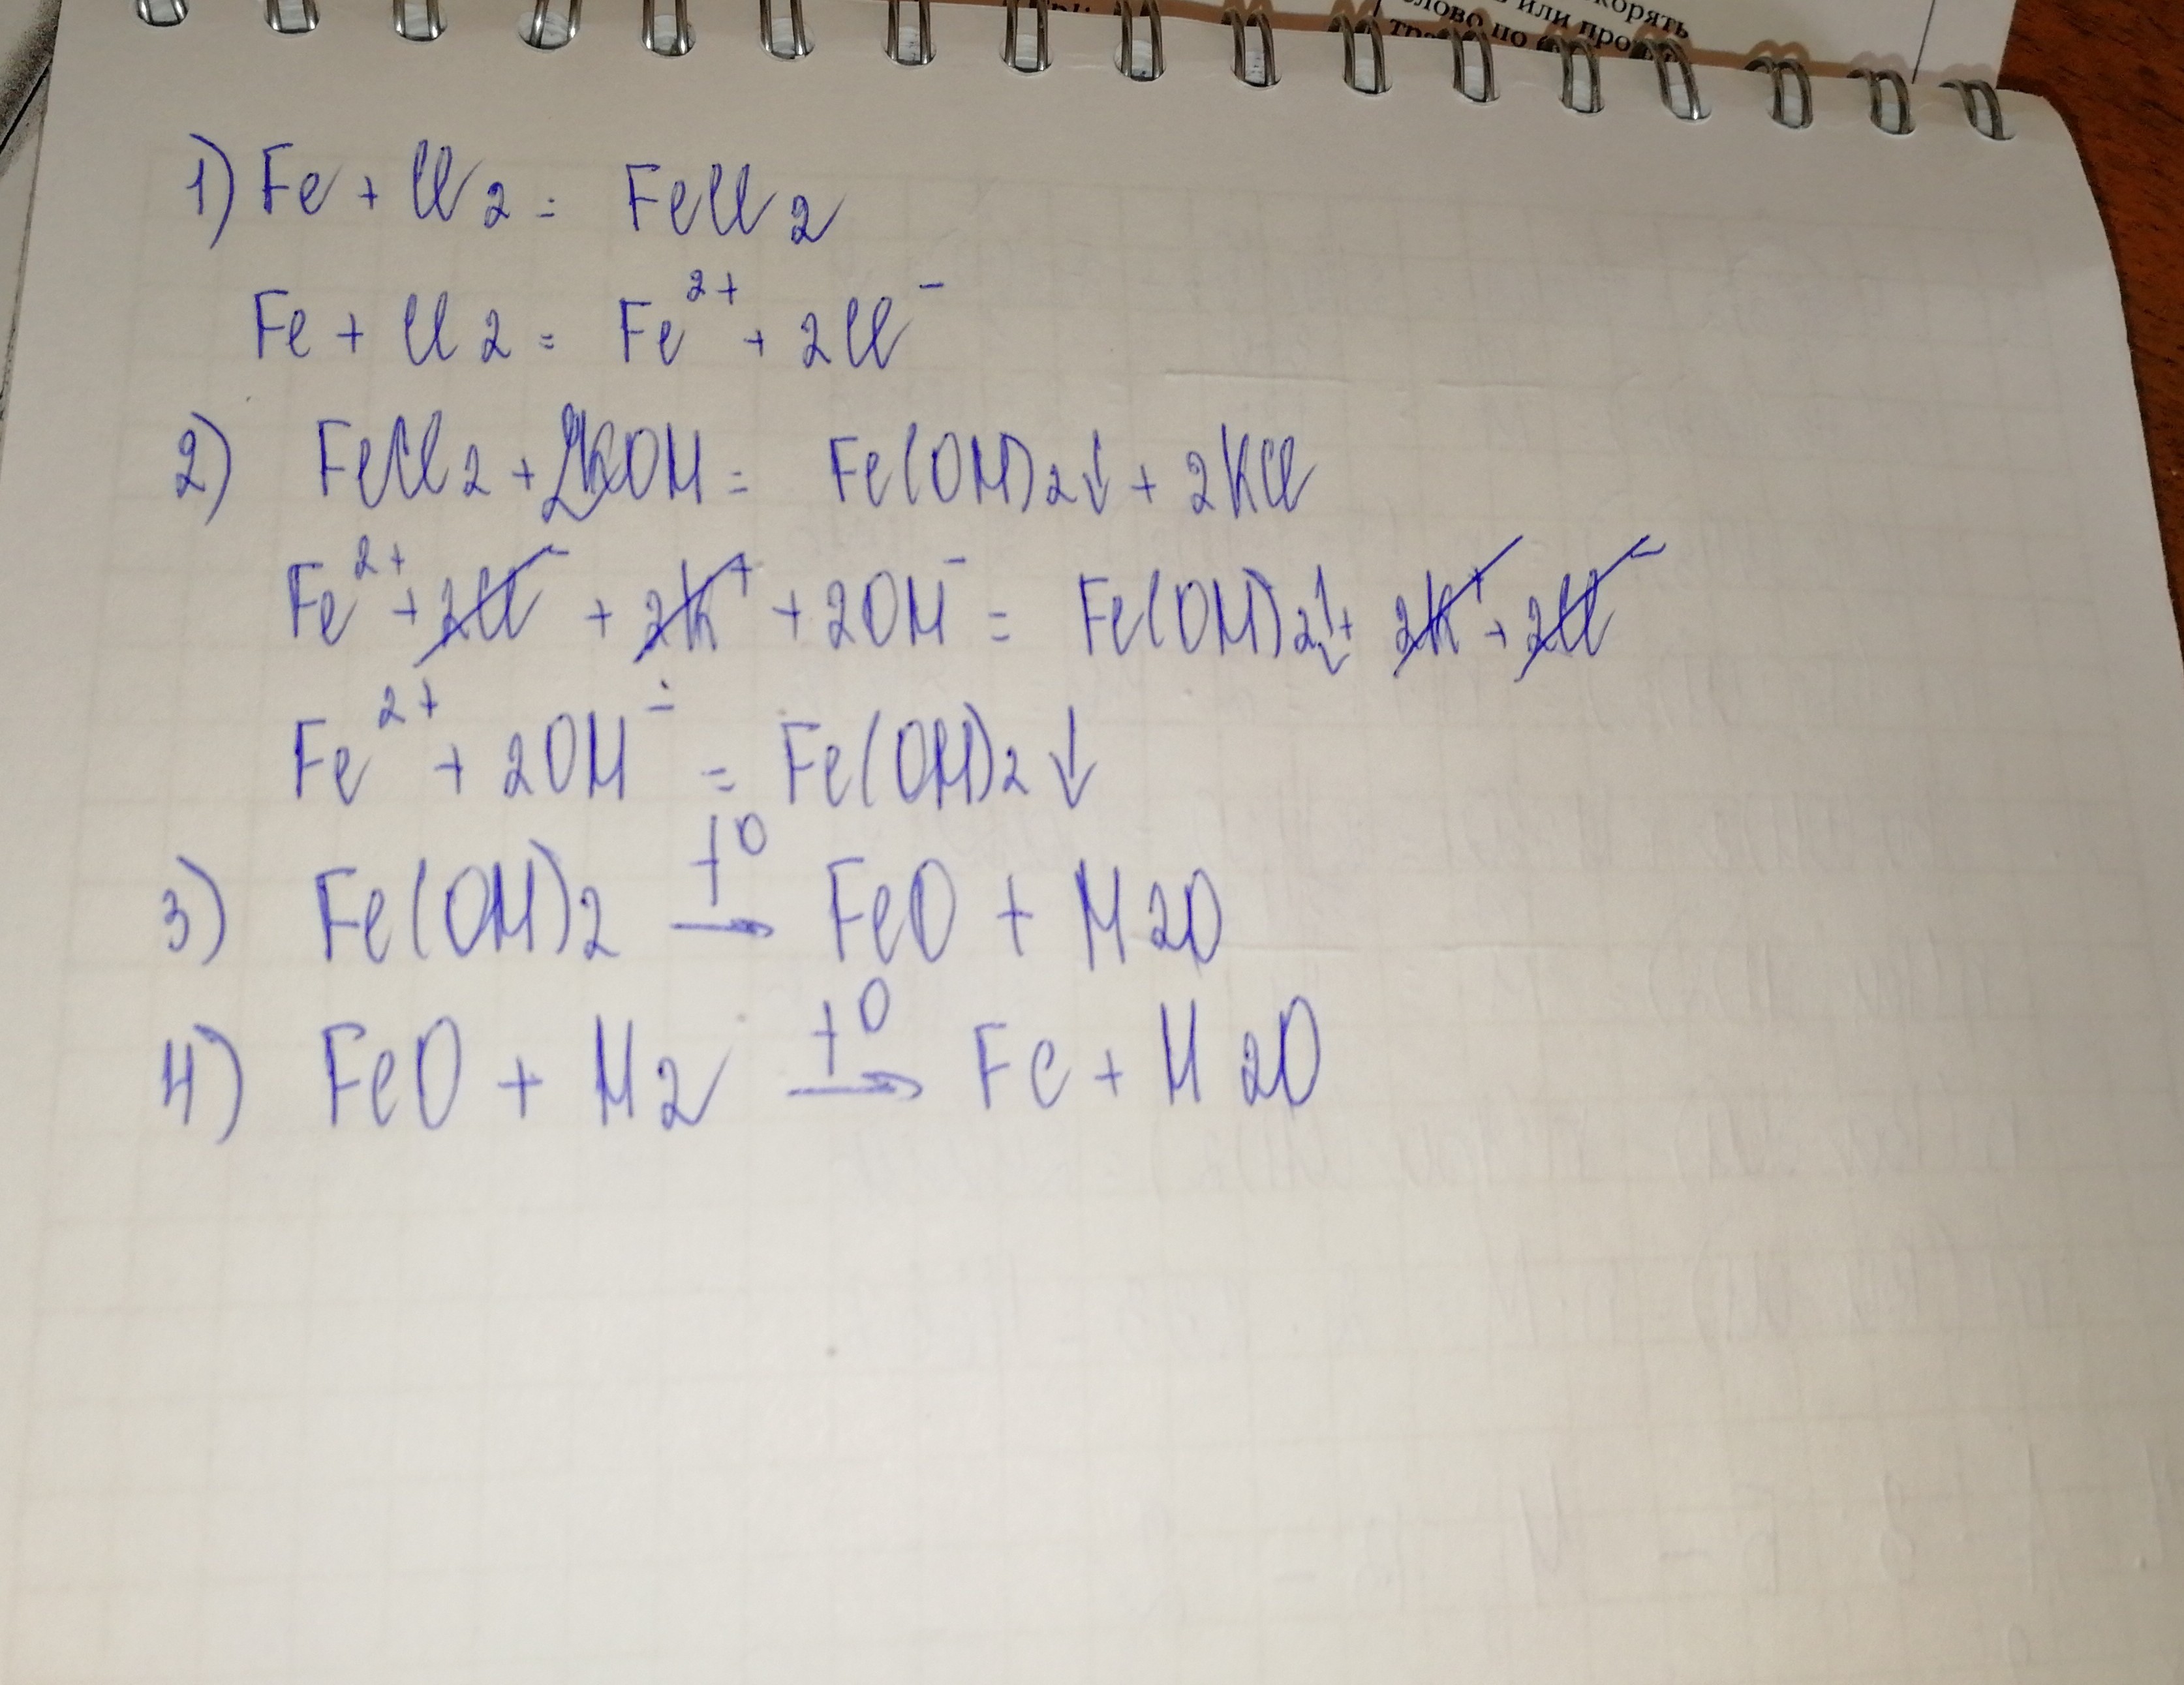 корять
или про
лово по
1) Fe + Cl2 = FeCl2
Fe + Cl2 = Fe²⁺ + 2Cl⁻
2) FeCl2 + 2KOH = Fe(OH)2↓ + 2KCl
Fe²⁺ + 2Cl⁻ + 2K⁺ + 2OH⁻ = Fe(OH)2↓ + 2K⁺ + 2Cl⁻
Fe²⁺ + 2OH⁻ = Fe(OH)2↓
3) Fe(OH)2 —t⁰→ FeO + H2O
4) FeO + H2 —t⁰→ Fe + H2O